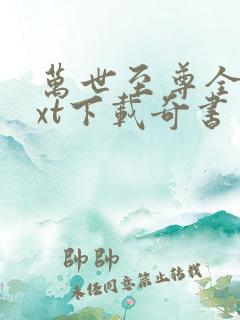 萬世至尊全
xt下載奇書
帥帥
未經同意禁止轉載